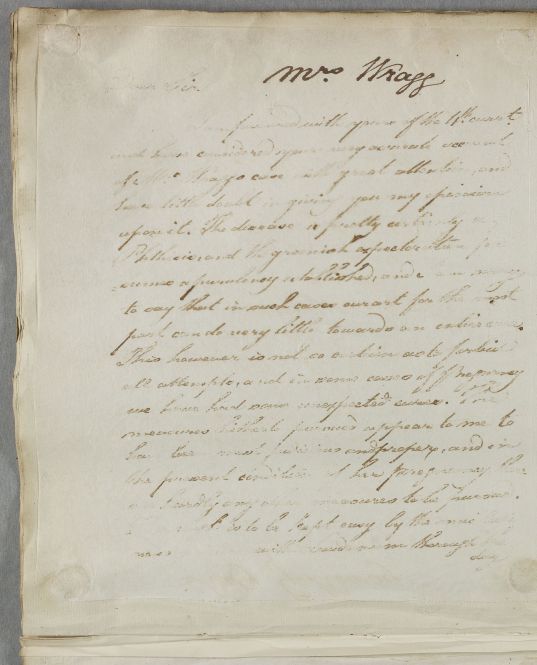 Mrs. Wragg
Dear Sir
favored with yours of the 11th curt.
and have considered your very accurate account
of Mrs. Wragg's case with great attention, and
have little doubt in giving you my opinion
upon it. The disease is pretty certainly a
Phthisis, and the greenish expectoration
a purulency established, and I am sorry
to say that in such cases our art for the most
part can do very little towards an entire cure.
This however is not so certain as to forbid
all attempts, and in some cases of Pregnancy
we have had some unexpected cures. The
measures hitherto pursued appear to me to
have been most judicious and proper, and in
the present condition of her pregnancy there
is hardly any other measures to be pursued.
is to be kept easy by the
with through the
day